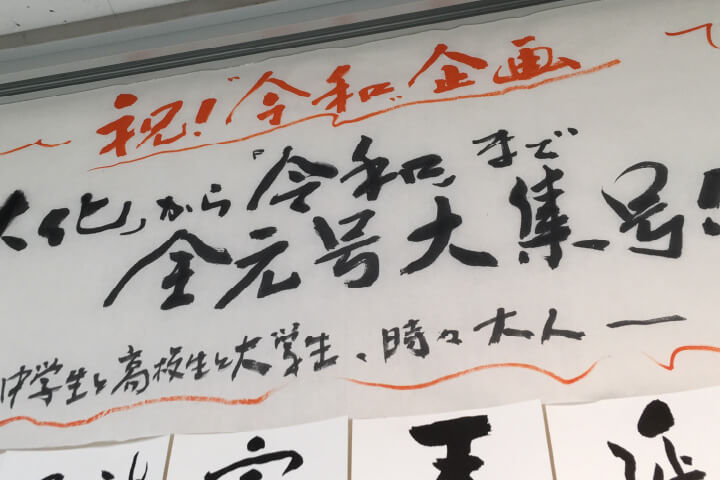 祝!"令和"企画
大化」から「令和」まで
全元号大集号!
中学生と高校生と大学生、時々大人―